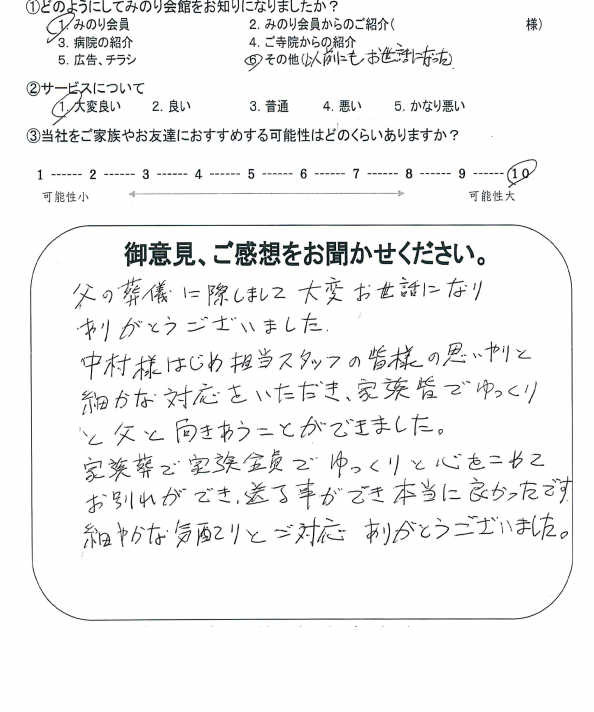 ①どのようにしてみのり会館をお知りになりましたか？
1. みのり会員 2. みのり会員からのご紹介( 様)
3. 病院の紹介 4. ご寺院からの紹介
5. 広告、チラシ 6 その他(以前にもお世話になった)
②サービスについて
1. 大変良い 2. 良い 3. 普通 4. 悪い 5. かなり悪い
③当社をご家族やお友達におすすめする可能性はどのくらいありますか？
1 ------ 2 ------ 3 ------ 4 ------ 5 ------ 6 ------ 7 ------ 8 ------ 9 ------ 10
可能性小 可能性大
御意見、ご感想をお聞かせください。
父の葬儀に際しまして大変お世話になり
ありがとうございました.
中村様はじめ担当スタッフの皆様の思いやりと
細かな対応をいただき、家族皆でゆっくり
と父と向きあうことができました。
家族葬で家族全員でゆっくりと心をこめて
お別れができ、送る事ができ本当に良かったです
細やかな気配りとご対応ありがとうございました。